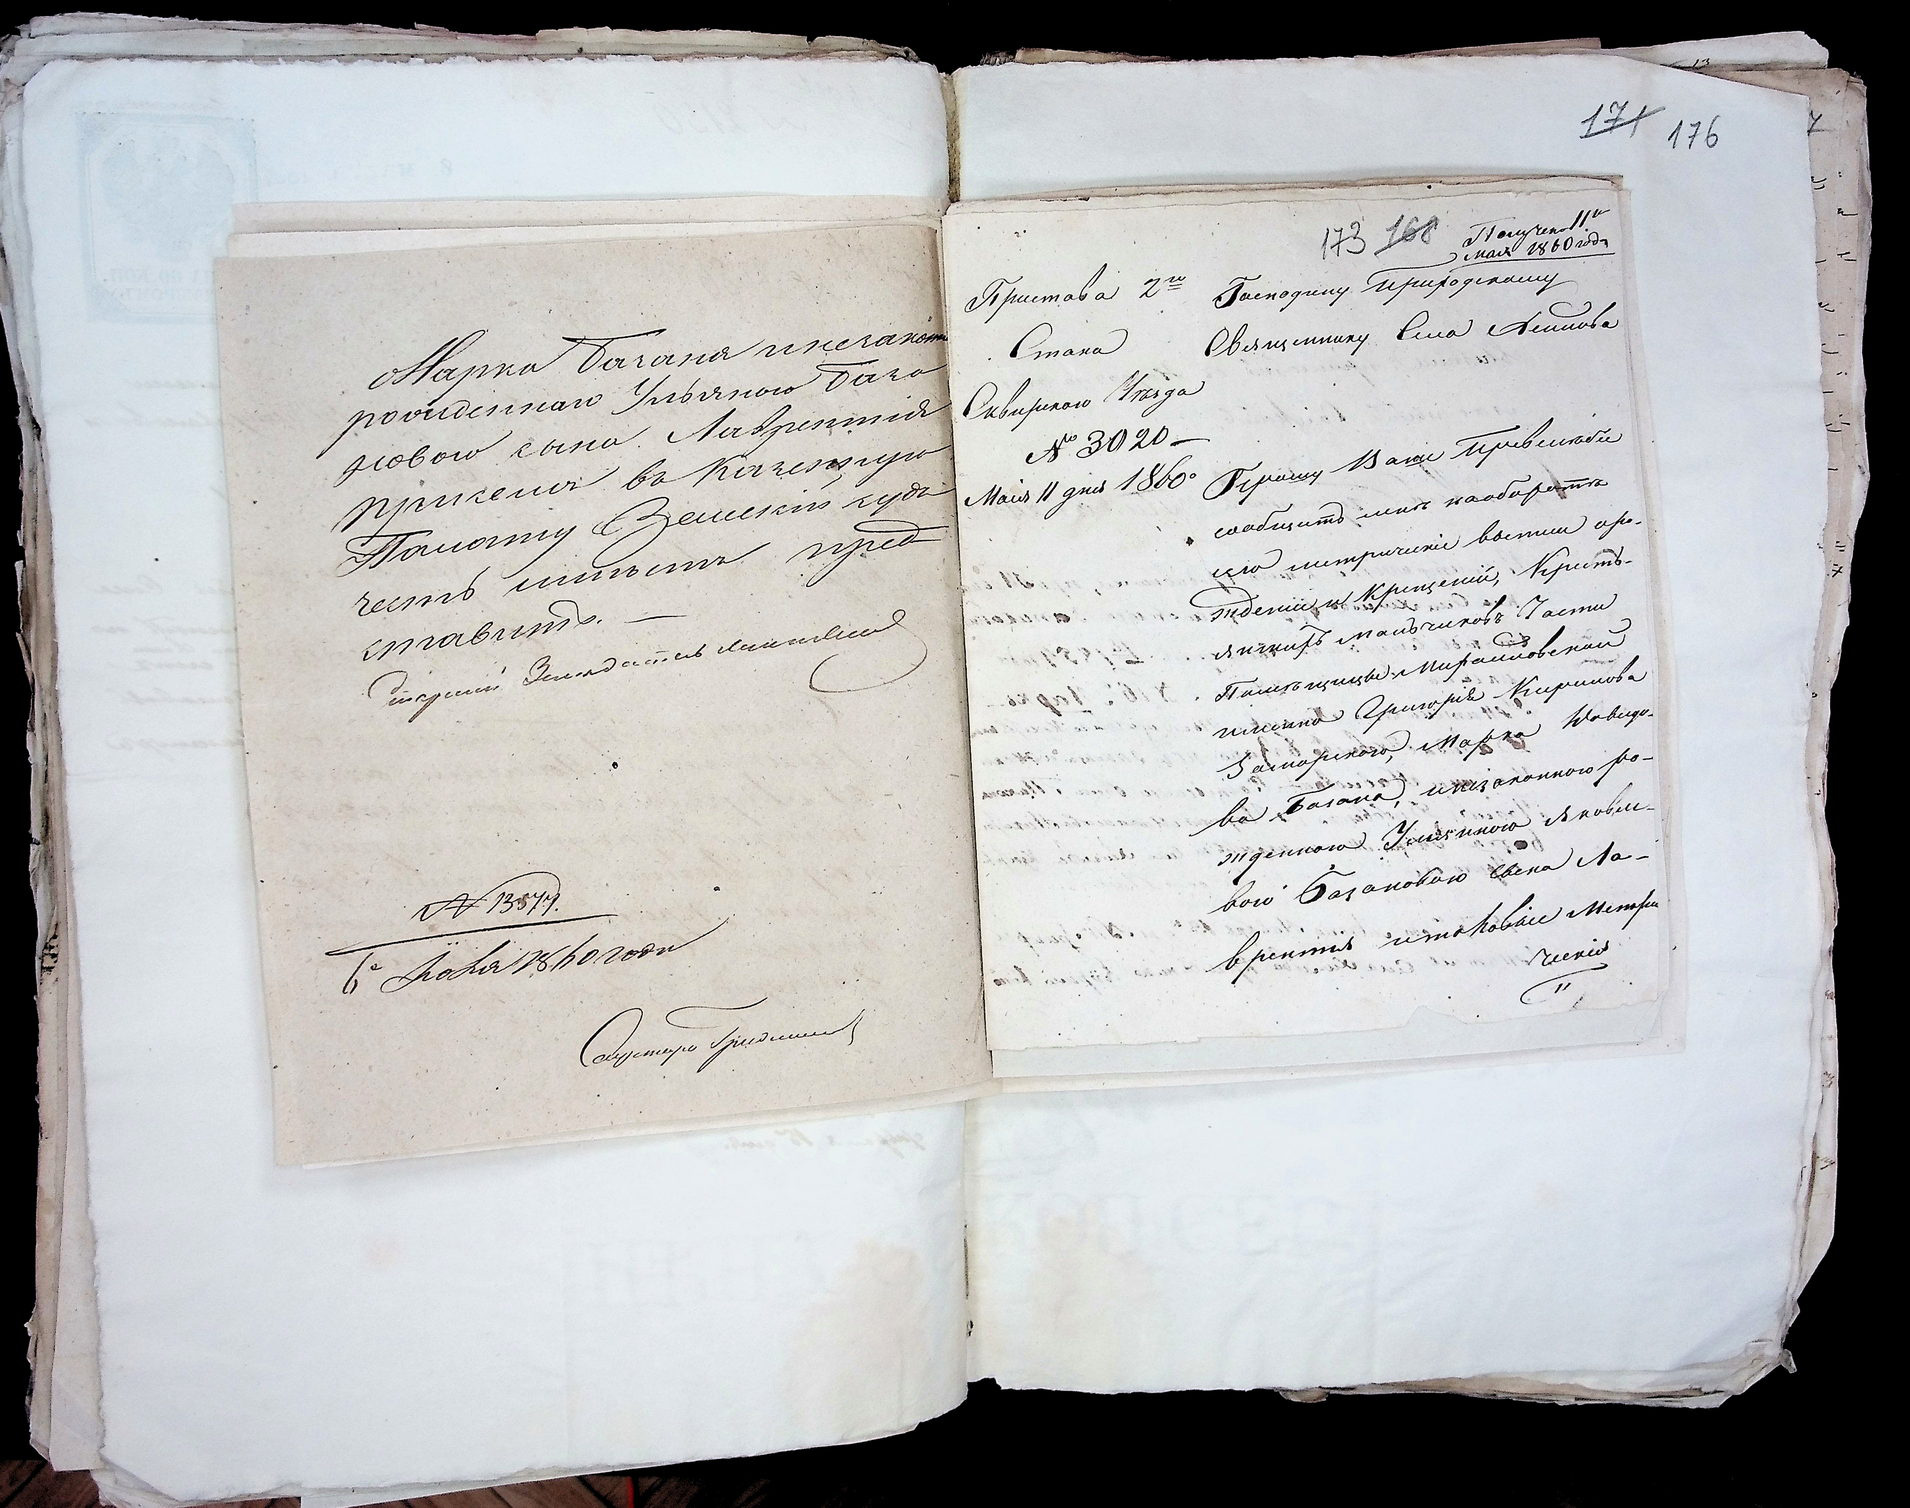 Марка Базана и незаконно
рожденнаго Ульяною База
новою сына Лаврентія
пріиемля въ Казенную
Палату Земскій судъ
честь имѣетъ пред
ставить. —
Старшій Засѣдатель
№ 13577.
6го Іюня 1860 года
171 176
173 168
Получено 11го
мая 1860 года
Пристава 2го
Стана
Сквирскаго Уѣзда
№ 3020 —
Маія 11 дня 1860
Господину Приходскому
Священнику Села
Прошу Ваше Преподобіе
сообщить мнѣ на оборотѣ
сего метрическіе о ро-
жденіи и Крещеніи, Кресть-
янскихъ мальчиковъ Части
Помѣщицы Михайловской
именно Григорія Кирилова
Заморскаго, Марка Давидо-
ва Базана, и незаконного ро-
жденного Ульяною Яковле-
вою Базановою сына Ла-
врентія и таковые Метри
ческія